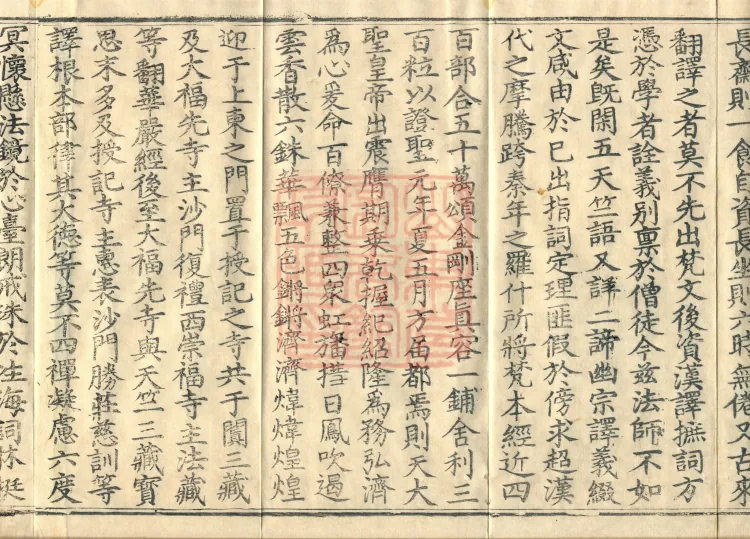 長齋則一食自資長坐則六時無倦又古來
翻譯之者莫不先出梵文後資漢譯摭詞方
憑於學者詮義別禀於僧徒今兹法師不如
是矣既閑五天竺語又詳二諦幽宗譯義綴
文咸由於已出指詞定理匪假於傍求超漢
代之摩騰跨秦年之羅什所將梵本經近四
百部合五十萬頌金剛座真容一鋪舍利三
百粒以證聖元年夏五月方屆都焉則天大
聖皇帝出震膺期乘乾握紀紹隆爲務弘濟
爲心爰命百僚兼整四衆虹旛𢷬日鳳吹遏
雲香散六銖華飄五色鏘鏘濟濟煒煒煌煌
迎于上東之門置于授記之寺共于闐三藏
及大福先寺主沙門復禮西崇福寺主法藏
等翻華嚴經後至大福先寺與天竺三藏寶
思末多及授記寺主惠表沙門勝莊慈訓等
譯根本部律其大德等莫不四禪凝慮六度
冥懷懸法鏡於心臺朗戒珠於性海詞林挺